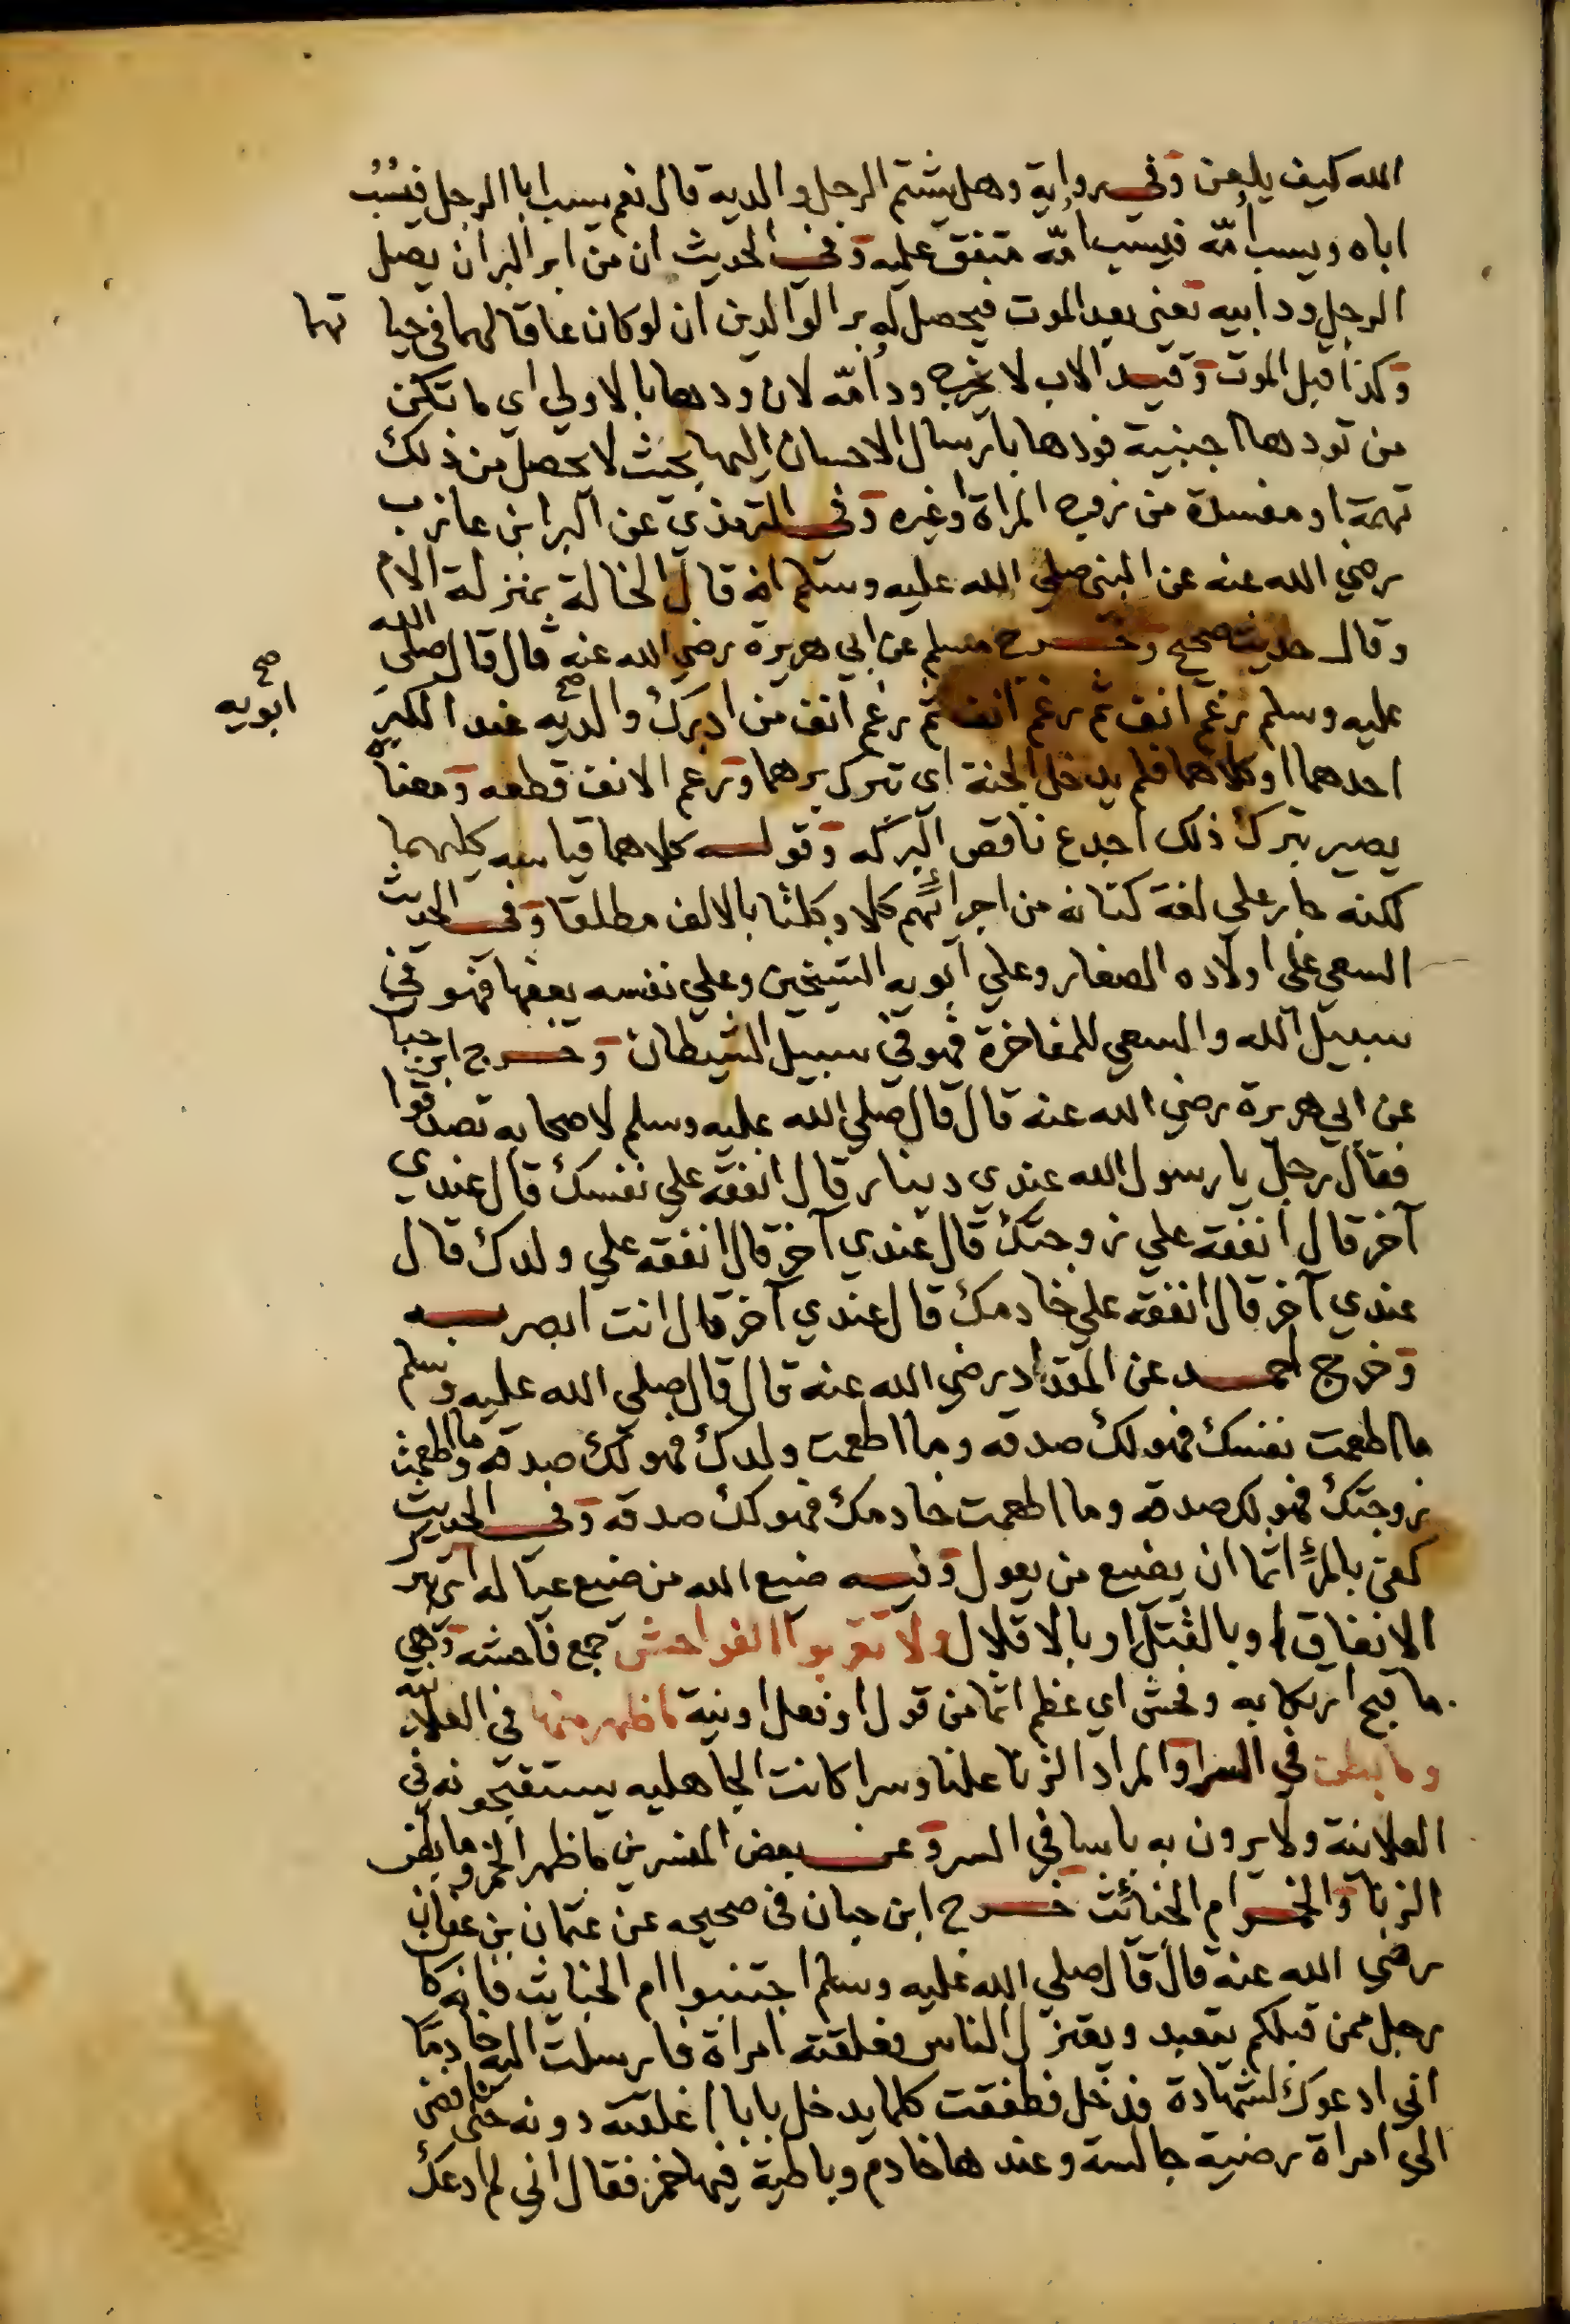 الله كيف يلعن وفي رواية وهل يشتم الرجل والديه قال نعم يسب ابا الرجل فيسُبُّ
اباه ويسب امّه فيسب امّه متفق عليه وفي الحديث ان من ابر البر ان يصل
الرجل ود ابيه يعني بعد الموت فيحصل له بر الوالدين ان لو كان عاقا لهما في حيا تهما
وكذا قبل الموت وقيد الاب لا يخرج ود امّه لان ودها بالاولي اي ما تكن
من تودها اجنبية فودها بارسال الاحسان اليها بحيث لا يحصل من ذلك
تهمة او مفسدة من زوج المراة او غيره وفي الترمذي عن البرا بن عازب
رضي الله عنه عن النبي صلي الله عليه وسلم انه قال الخالة بمنزلة الام
وقال حديث صحيح وخرج مسلم عن ابي هريرة رضي الله عنه قال قال صلي الله
عليه وسلم رغم انف ثم رغم انف ثم رغم انف من ادرك والديه عند الكبر
صح ابويه
احدهما او كلاهما فلم يدخل الجنة اي بترك برهما ورغم الانف قطعه ومعناه
يصير بترك ذلك اجدع ناقص البركه وقوله كلاهما قياسه كليهما
لكنه جار علي لغة كنانه من اجرائهم كلا وكلتا بالالف مطلقا وفي الحديث
السعي علي اولاده الصغار وعلي ابويه الشيخين وعلي نفسه يعفها فهو في
سبيل الله والسعي للمفاخرة فهو في سبيل الشيطان وخرج ابن حبان
عن ابي هريرة رضي الله عنه قال قال صلي الله عليه وسلم لاصحابه تصدقوا
فقال رجل يا رسول الله عندي دينار قال انفقه علي نفسك قال عندي
آخر قال انفقه علي زوجتك قال عندي آخر قال انفقه علي ولدك قال
عندي آخر قال انفقه علي خادمك قال عندي آخر قال انت ابصر به
وخرج احمد عن المقداد رضي الله عنه قال قال صلي الله عليه وسلم
ما اطعمت نفسك فهو لك صدقه وما اطعمت ولدك فهو لك صدقه وما اطعمت
زوجتك فهو لك صدقه وما اطعمت خادمك فهو لك صدقه وفي الحديث
كفي بالمرء اثما ان يضيع من يعول وفيه ضيع الله من ضيع عياله اي بترك
الانفاق او بالقتل او بالاقلال ولا تقربوا الفواحش جمع فاحشه وهي
ما قبح ارتكابه وفحش اي عظم اثما من قول او فعل او نية ما ظهر منها في العلانيه
وما بطن في السر والمراد الزنا علنا وسرا كانت الجاهليه يستقبحونه في
العلانية ولا يرون به باسا في السر وعن بعض المفسرين ما ظهر الخمر وما بطن
الزنا والخمر ام الخبائث خرج ابن حبان في صحيحه عن عثمان بن عفان
رضي الله عنه قال قال صلي الله عليه وسلم اجتنبوا ام الخبايث فانه كان
رجل ممن قبلكم يتعبد ويعتزل الناس فعلقته امراة فارسلت اليه خادما
اني ادعوك لشهادة فدخل فطفقت كلما يدخل بابا اغلقته دونه حتي افضي
الي امراة رضية جالسة وعندها خادم وباطية فيها خمر فقال اني لم ادعك